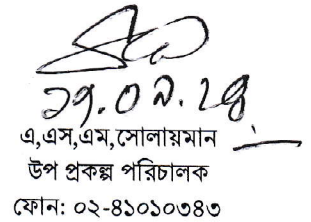 এ,এস,এম,সোলায়মান
উপ প্রকল্প পরিচালক
ফোন: ০২-৪১০১০৩৪৩